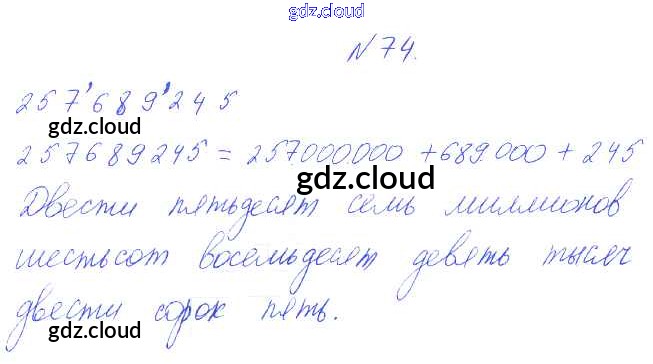 gdz.cloud
N 74.
257'689'245
gdz.cloud
257689245 = 257000000 + 689000 + 245
gdz.cloud
Двести пятьдесят семь миллионов
шестьсот восемьдесят девять тысяч
двести сорок пять.
gdz.cloud
gdz.cloud